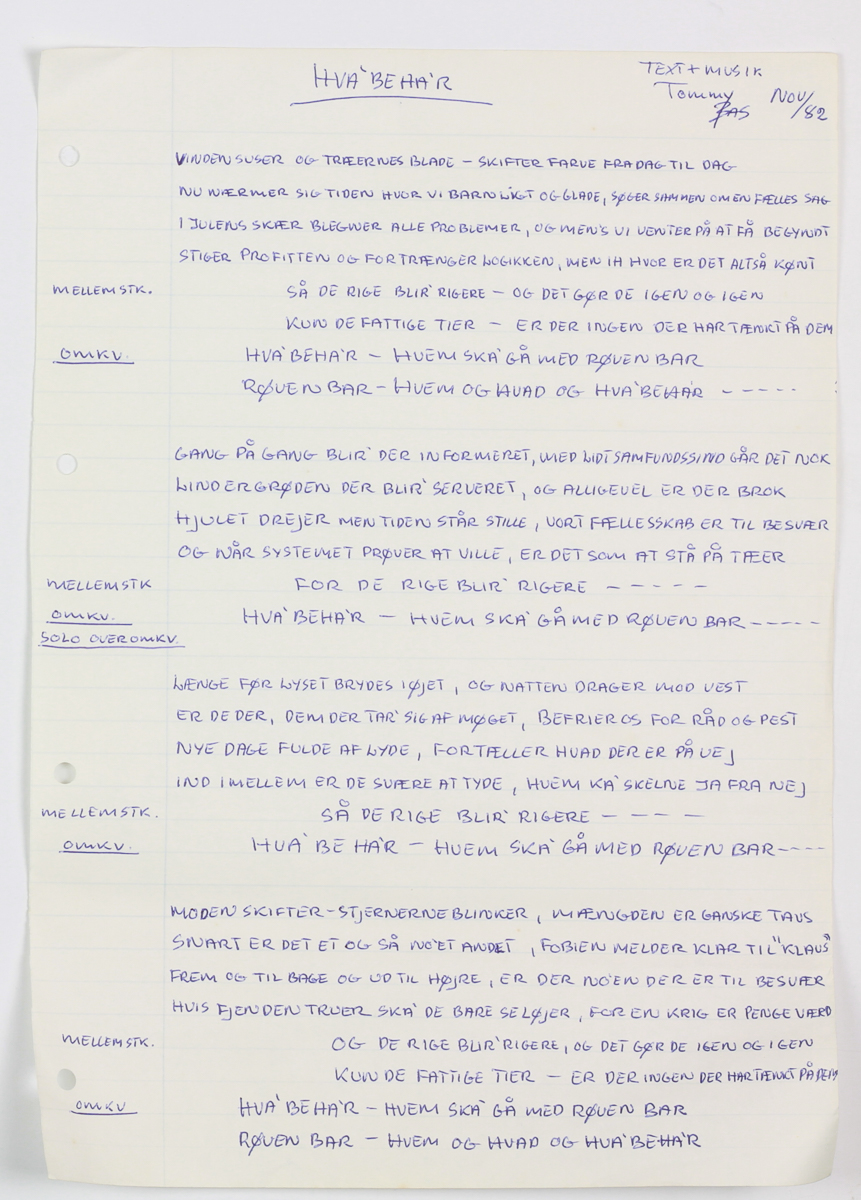 HVA' BEHA'R
TEXT + MUSIK
Tommy
BAS
NOV/82
VINDEN SUSER OG TRÆERNES BLADE – SKIFTER FARVE FRA DAG TIL DAG
NU NÆRMER SIG TIDEN HVOR VI BARNLIGT OG GLADE, SØGER SAMMEN OM EN FÆLLES SAG
I JULENS SKÆR BLEGNER ALLE PROBLEMER, OG MENS VI VENTER PÅ AT FÅ BEGYNDT
STIGER PROFITTEN OG FORTRÆNGER LOGIKKEN, MEN IH HVOR ER DET ALTSÅ KØNT
MELLEMSTK. SÅ DE RIGE BLIR' RIGERE – OG DET GØR DE IGEN OG IGEN
KUN DE FATTIGE TIER – ER DER INGEN DER HAR TÆNKT PÅ DEM
OMKV. HVA' BEHA'R – HVEM SKA' GÅ MED RØVEN BAR
RØVEN BAR – HVEM OG HVAD OG HVA' BEHA'R – – – – –
GANG PÅ GANG BLIR' DER INFORMERET, MED LIDT SAMFUNDSSIND GÅR DET NOK
LINDERGRØDEN DER BLIR' SERVERET, OG ALLIGEVEL ER DER BROK
HJULET DREJER MEN TIDEN STÅR STILLE, VORT FÆLLESSKAB ER TIL BESVÆR
OG NÅR SYSTEMET PRØVER AT VILLE, ER DET SOM AT STÅ PÅ TÆER
MELLEMSTK FOR DE RIGE BLIR' RIGERE – – – – –
OMKV. HVA' BEHA'R – HVEM SKA' GÅ MED RØVEN BAR – – – – –
SOLO OVER OMKV.
LÆNGE FØR LYSET BRYDES I ØJET, OG NATTEN DRAGER MOD VEST
ER DE DER, DEM DER TAR' SIG AF MØGET, BEFRIER OS FOR RÅD OG PEST
NYE DAGE FULDE AF LYDE, FORTÆLLER HVAD DER ER PÅ VEJ
IND IMELLEM ER DE SVÆRE AT TYDE, HVEM KA' SKELNE JA FRA NEJ
MELLEMSTK. SÅ DE RIGE BLIR' RIGERE – – – –
OMKV. HVA' BEHA'R – HVEM SKA' GÅ MED RØVEN BAR – – – –
MODEN SKIFTER – STJERNERNE BLINKER, MÆNGDEN ER GANSKE TAUS
SNART ER DET ET OG SÅ NO'ET ANDET, FOBIEN MELDER KLAR TIL "KLAUS"
FREM OG TILBAGE OG UD TIL HØJRE, ER DER NO'EN DER ER TIL BESVÆR
HVIS FJENDEN TRUER SKA' DE BARE SE LØJER, FOR EN KRIG ER PENGE VÆRD
MELLEMSTK. OG DE RIGE BLIR' RIGERE, OG DET GØR DE IGEN OG IGEN
KUN DE FATTIGE TIER – ER DER INGEN DER HAR TÆNKT PÅ DEM
OMKV HVA' BEHA'R – HVEM SKA' GÅ MED RØVEN BAR
RØVEN BAR – HVEM OG HVAD OG HVA' BEHA'R